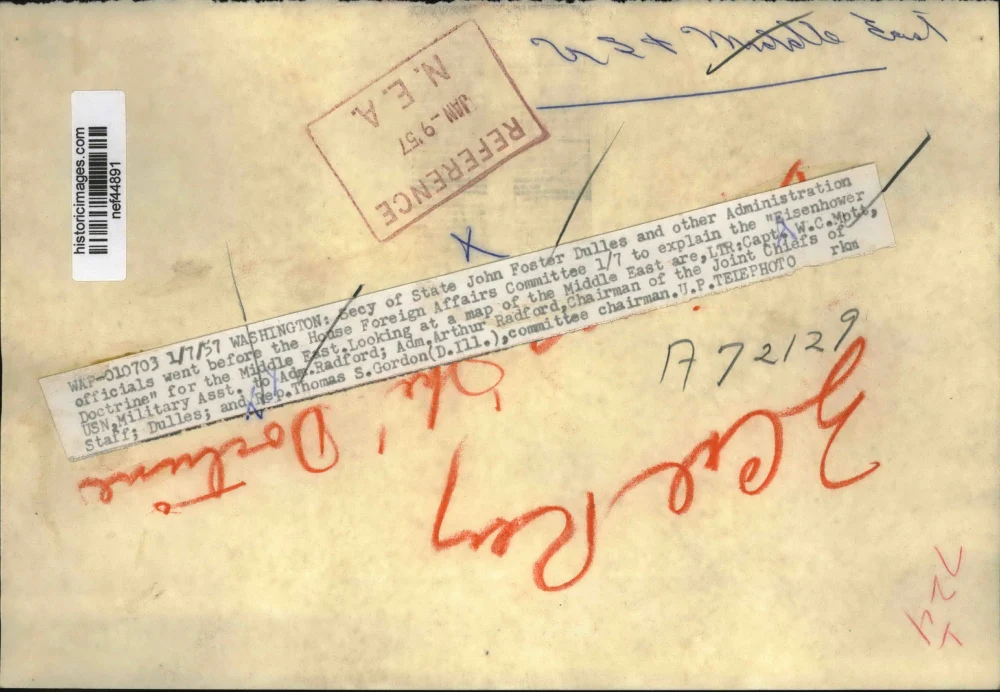 US & Middle East
REFERENCE
JAN -9 '57
N. E. A.
historicimages.com
nef44891
WAP-010703 1/7/57 WASHINGTON: Secy of State John Foster Dulles and other Administration
officials went before the House Foreign Affairs Committee 1/7 to explain the "Eisenhower
Doctrine" for the Middle East.Looking at a map of the Middle East are,LTR:Capt. W.C.Mott,
USN,Military Asst. to Adm.Radford; Adm,Arthur Radford,Chairman of the Joint Chiefs of
Staff; Dulles; and Rep.Thomas S.Gordon(D.Ill.),committee chairman.U.P.TELEPHOTO rkm
A72129
3 Col
Doctrine